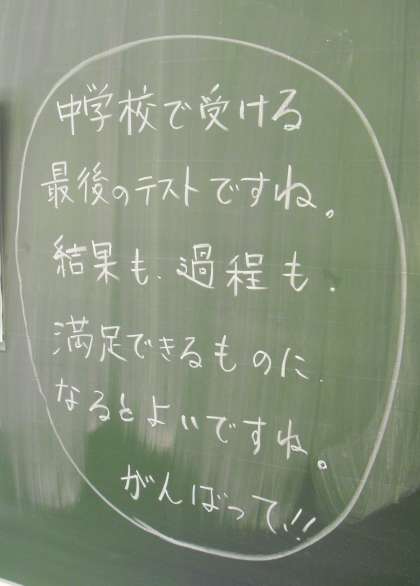 中学校で受ける
最後のテストですね。
結果も、過程も、
満足できるものに
なるとよいですね。
がんばって!!